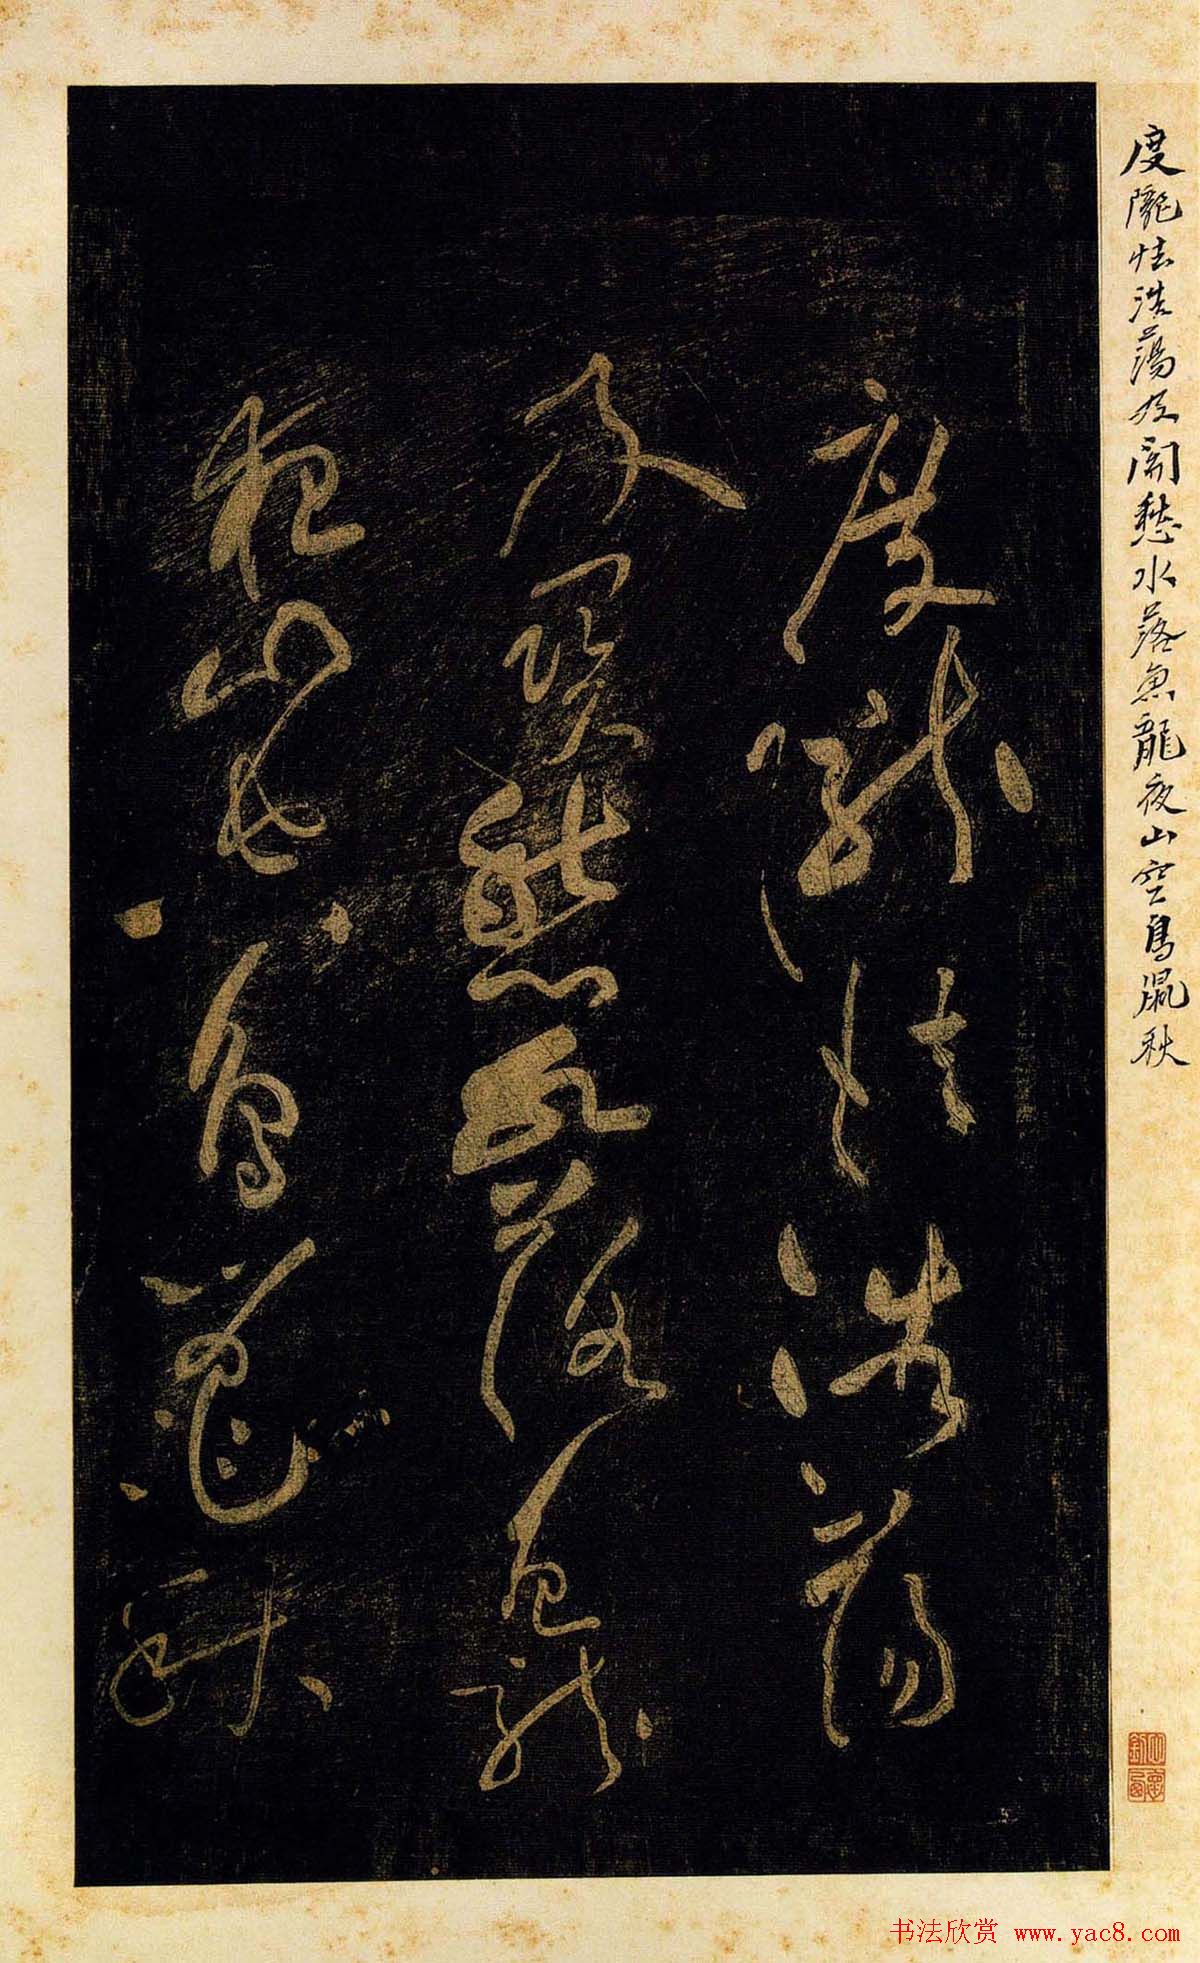 度隴怯浩蕩及關愁水落魚龍夜山空鳥鼠秋
度隴怯浩蕩
及關愁水落魚龍
夜山空鳥鼠秋
书法欣赏 www.yac8.com